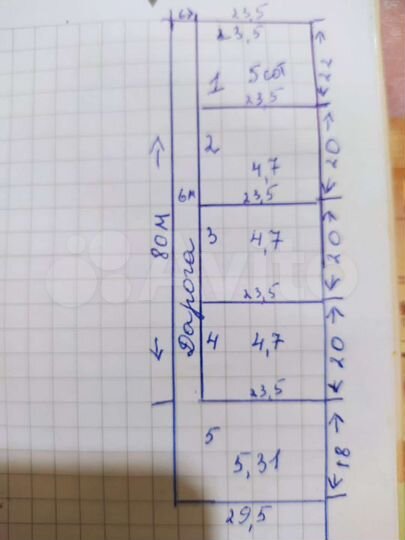 6м 23,5
23,5
1 5 сот 22
23,5
2 20
4,7
6м 23,5
80м Дарога
3 4,7 20
23,5
4 4,7 20
23,5
5
5,31 18
29,5
Avito